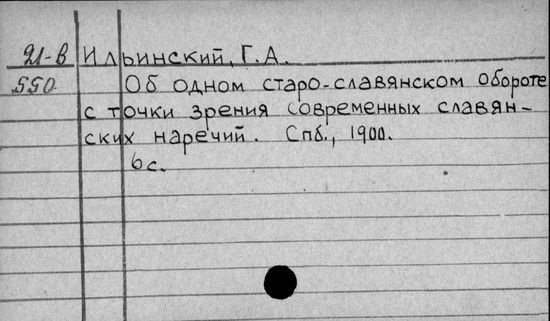 21-в Ильинский, Г.А.
550. Об одном старо-славянском обороте
с точки зрения современных славян-
ских наречий. Спб., 1900.
6с.